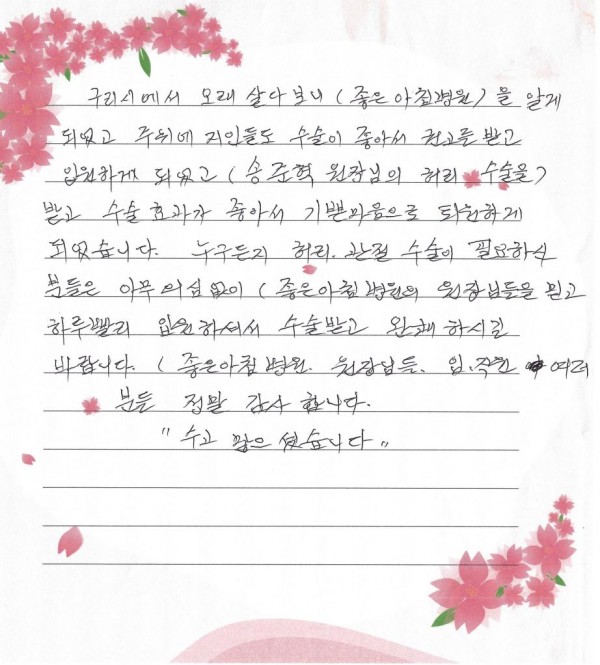 구리시에서 오래 살다보니 (좋은아침병원)을 알게
되었고 주위에 지인들도 수술이 좋아서 권고를 받고
입원하게 되었고 (송준혁 원장님의 허리 수술을)
받고 수술 효과가 좋아서 기쁜마음으로 퇴원하게
되었습니다. 누구든지 허리. 관절 수술이 필요하신
분들은 아무 의심없이 (좋은아침병원의 원장님들을 믿고
하루빨리 입원하셔서 수술받고 완쾌하시길
바랍니다. (좋은아침병원. 원장님들. 임.직원 여러
분들 정말 감사 합니다.
"수고 많으 셨습니다"